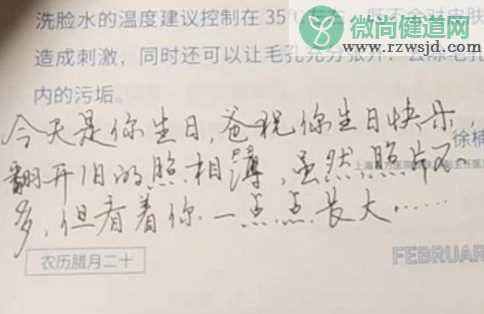 微尚健康网
www.rzwsjd.com
洗脸水的温度建议控制在35℃左右，既不会对皮肤
造成刺激，同时还可以让毛孔充分张开，去除毛孔
内的污垢。
今天是你生日，爸祝你生日快乐，
翻开旧的照相薄，虽然照片不
多，但看着你一点点长大……
徐楠
农历腊月二十
FEBRUAR